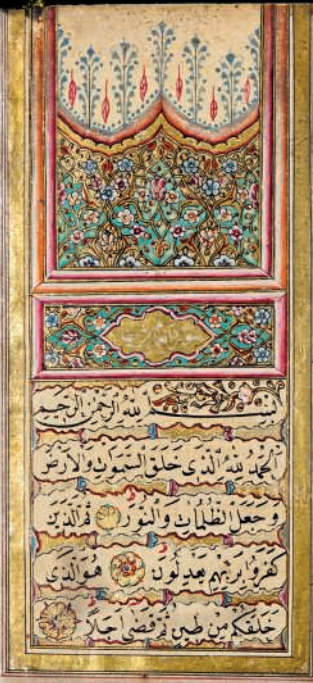 بِسْمِ اللهِ الرَّحْمٰنِ الرَّحِيمِ
اَلْحَمْدُ لِلّٰهِ الَّذِى خَلَقَ السَّمٰوَاتِ وَالْاَرْضَ
وَجَعَلَ الظُّلُمَاتِ وَالنُّورَ ثُمَّ الَّذِينَ
كَفَرُوا بِرَبِّهِمْ يَعْدِلُونَ هُوَ الَّذِى
خَلَقَكُمْ مِنْ طِينٍ ثُمَّ قَضٰى اَجَلًا